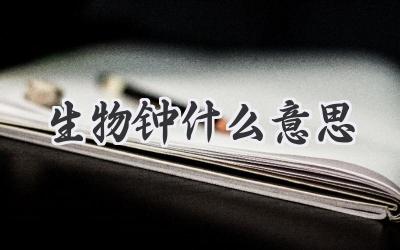 生物钟什么意思